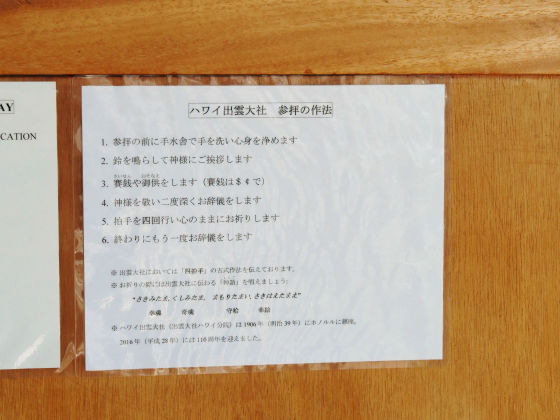 AY
CATION
ハワイ出雲大社　参拝の作法
1. 参拝の前に手水舎で手を洗い心身を浄めます
2. 鈴を鳴らして神様にご挨拶します
さいせん　おそなえ
3. 賽銭や御供をします（賽銭は＄￠で）
4. 神様を敬い二度深くお辞儀をします
5. 拍手を四回行い心のままにお祈りします
6. 終わりにもう一度お辞儀をします
※ 出雲大社においては「四拍手」の古式作法を伝えております。
※ お祈りの際には出雲大社に伝わる「神語」を唱えましょう:
“さきみたま, くしみたま,　まもりたまい, さきはえたまえ”
幸魂　奇魂　守給　幸給
※ ハワイ出雲大社（出雲大社ハワイ分院）は 1906 年（明治 39 年）にホノルルに鎮座。
2016 年（平成 28 年）には 110 周年を迎えました。